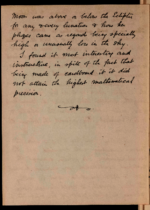 Moon was above or below the Ecliptic
for any & every lunation & how he
phases came as regards being specially
high or unusually low in the sky.
I found it most interesting and
instructive, in spite of the fact that
being made of cardboard it did
not attain the highest mathematical
precision.